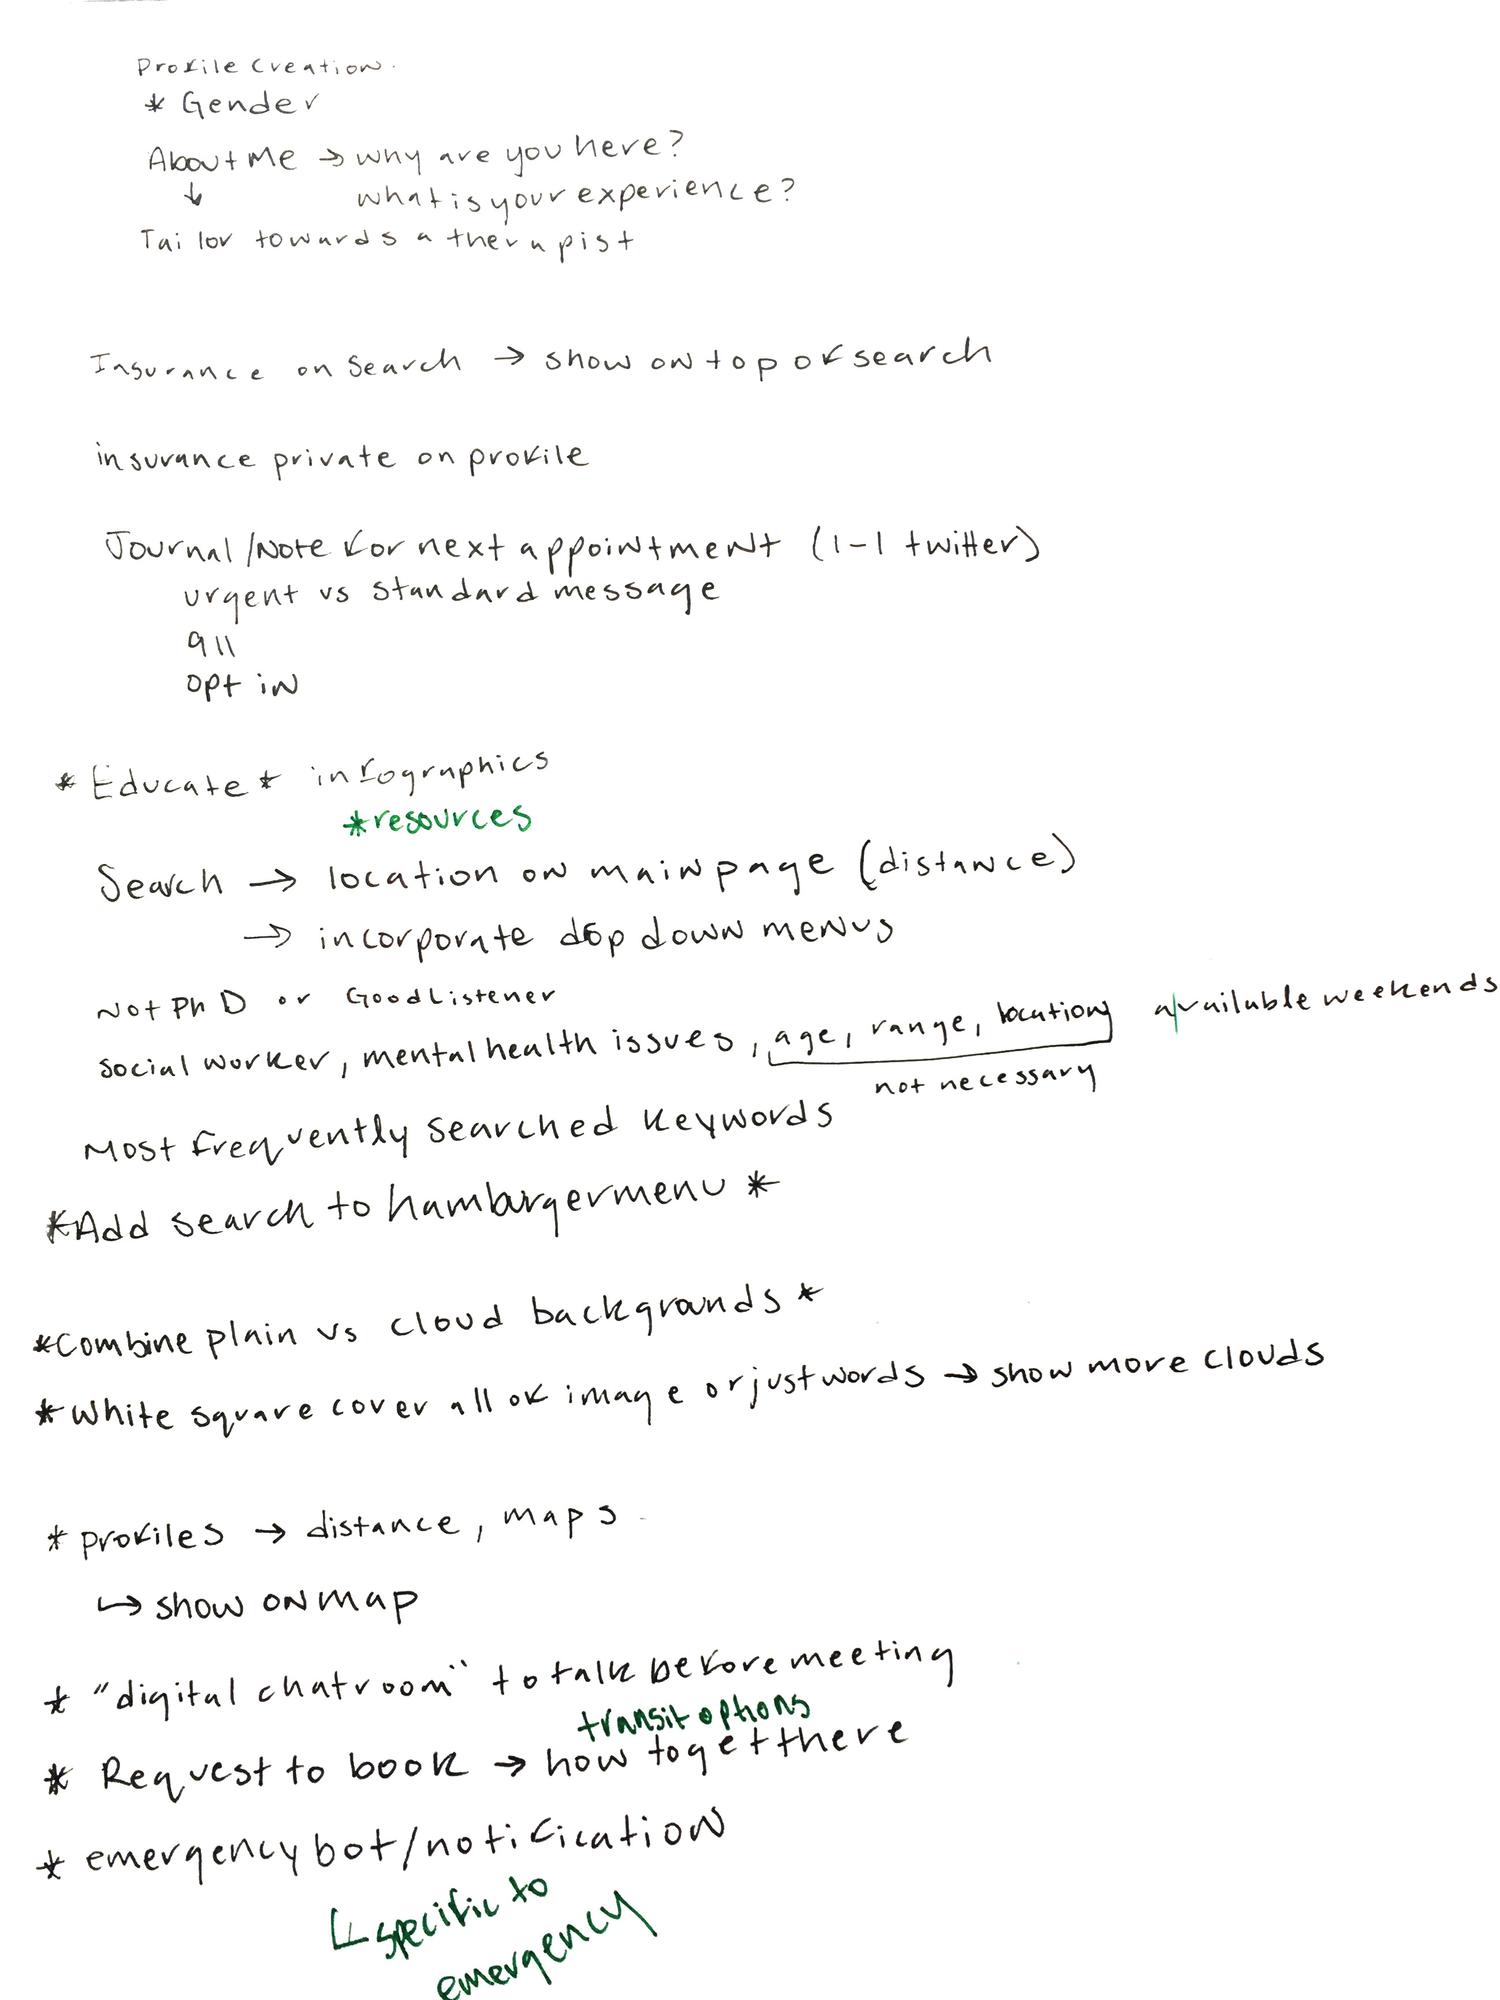 Profile Creation.
* Gender
About Me → why are you here?
↓ what is your experience?
Tailor towards a therapist
Insurance on Search → show on top of search
insurance private on profile
Journal/Note for next appointment (1-1 twitter)
urgent vs standard message
911
opt in
* Educate * infographics
* resources
Search → location on main page (distance)
→ incorporate drop down menus
Not PhD or Good Listener
social worker, mental health issues, age, range, location, available weekends
not necessary
Most frequently searched keywords
* Add search to hamburger menu *
* Combine plain vs cloud backgrounds *
* White square cover all of image or just words → show more clouds
* profiles → distance, maps
↳ show on map
* "digital chatroom" to talk before meeting
transit options
* Request to book → how to get there
* emergency bot/notification
↳ specific to
emergency